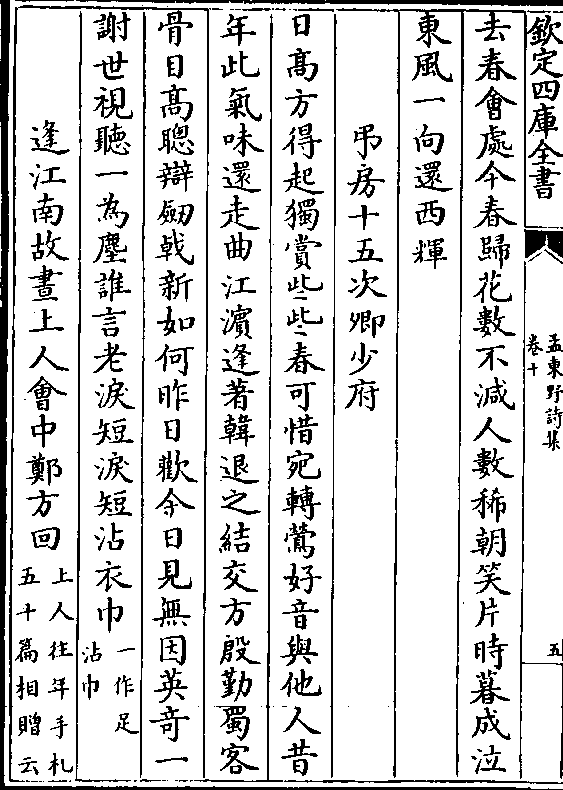 欽定四庫全書
孟東野詩集
卷十
五
去春會處今春歸花數不減人數稀朝笑片時暮成泣
東風一向還西輝
弔房十五次卿少府
日髙方得起獨賞些些春可惜宛轉鶯好音與他人昔
年此氣味還走曲江濵逢著韓退之結交方殷勤蜀客
骨目髙聰辯劒戟新如何昨日歡余日見無因英奇一
謝世視聽一為塵誰言老淚短淚短沾衣巾
一作足
沾巾
逢江南故晝上人會中鄭方回
上人往年手札
五十篇相贈云